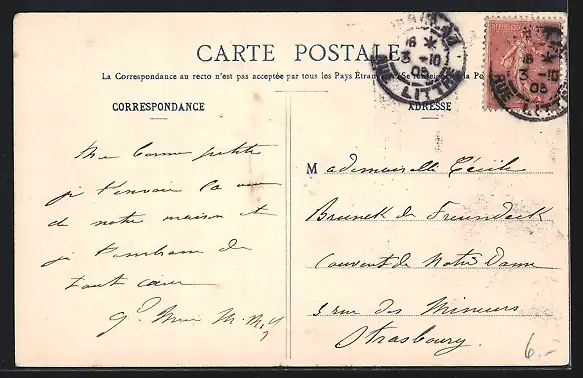 CARTE POSTALE
La Correspondance au recto n'est pas acceptée par tous les Pays Étran
CORRESPONDANCE
ADRESSE
Ma bonne petite
je t'envoie la vue
de notre maison et
je t'embrasse de
tout cœur
Mademoiselle Cécile
Brunck de Freundeck
Couvent de Notre Dame
5 rue des Mineurs
Strasbourg.
6.-
RUE LITTRÉ
18 *
3 - 10
05
18 *
3 - 10
05